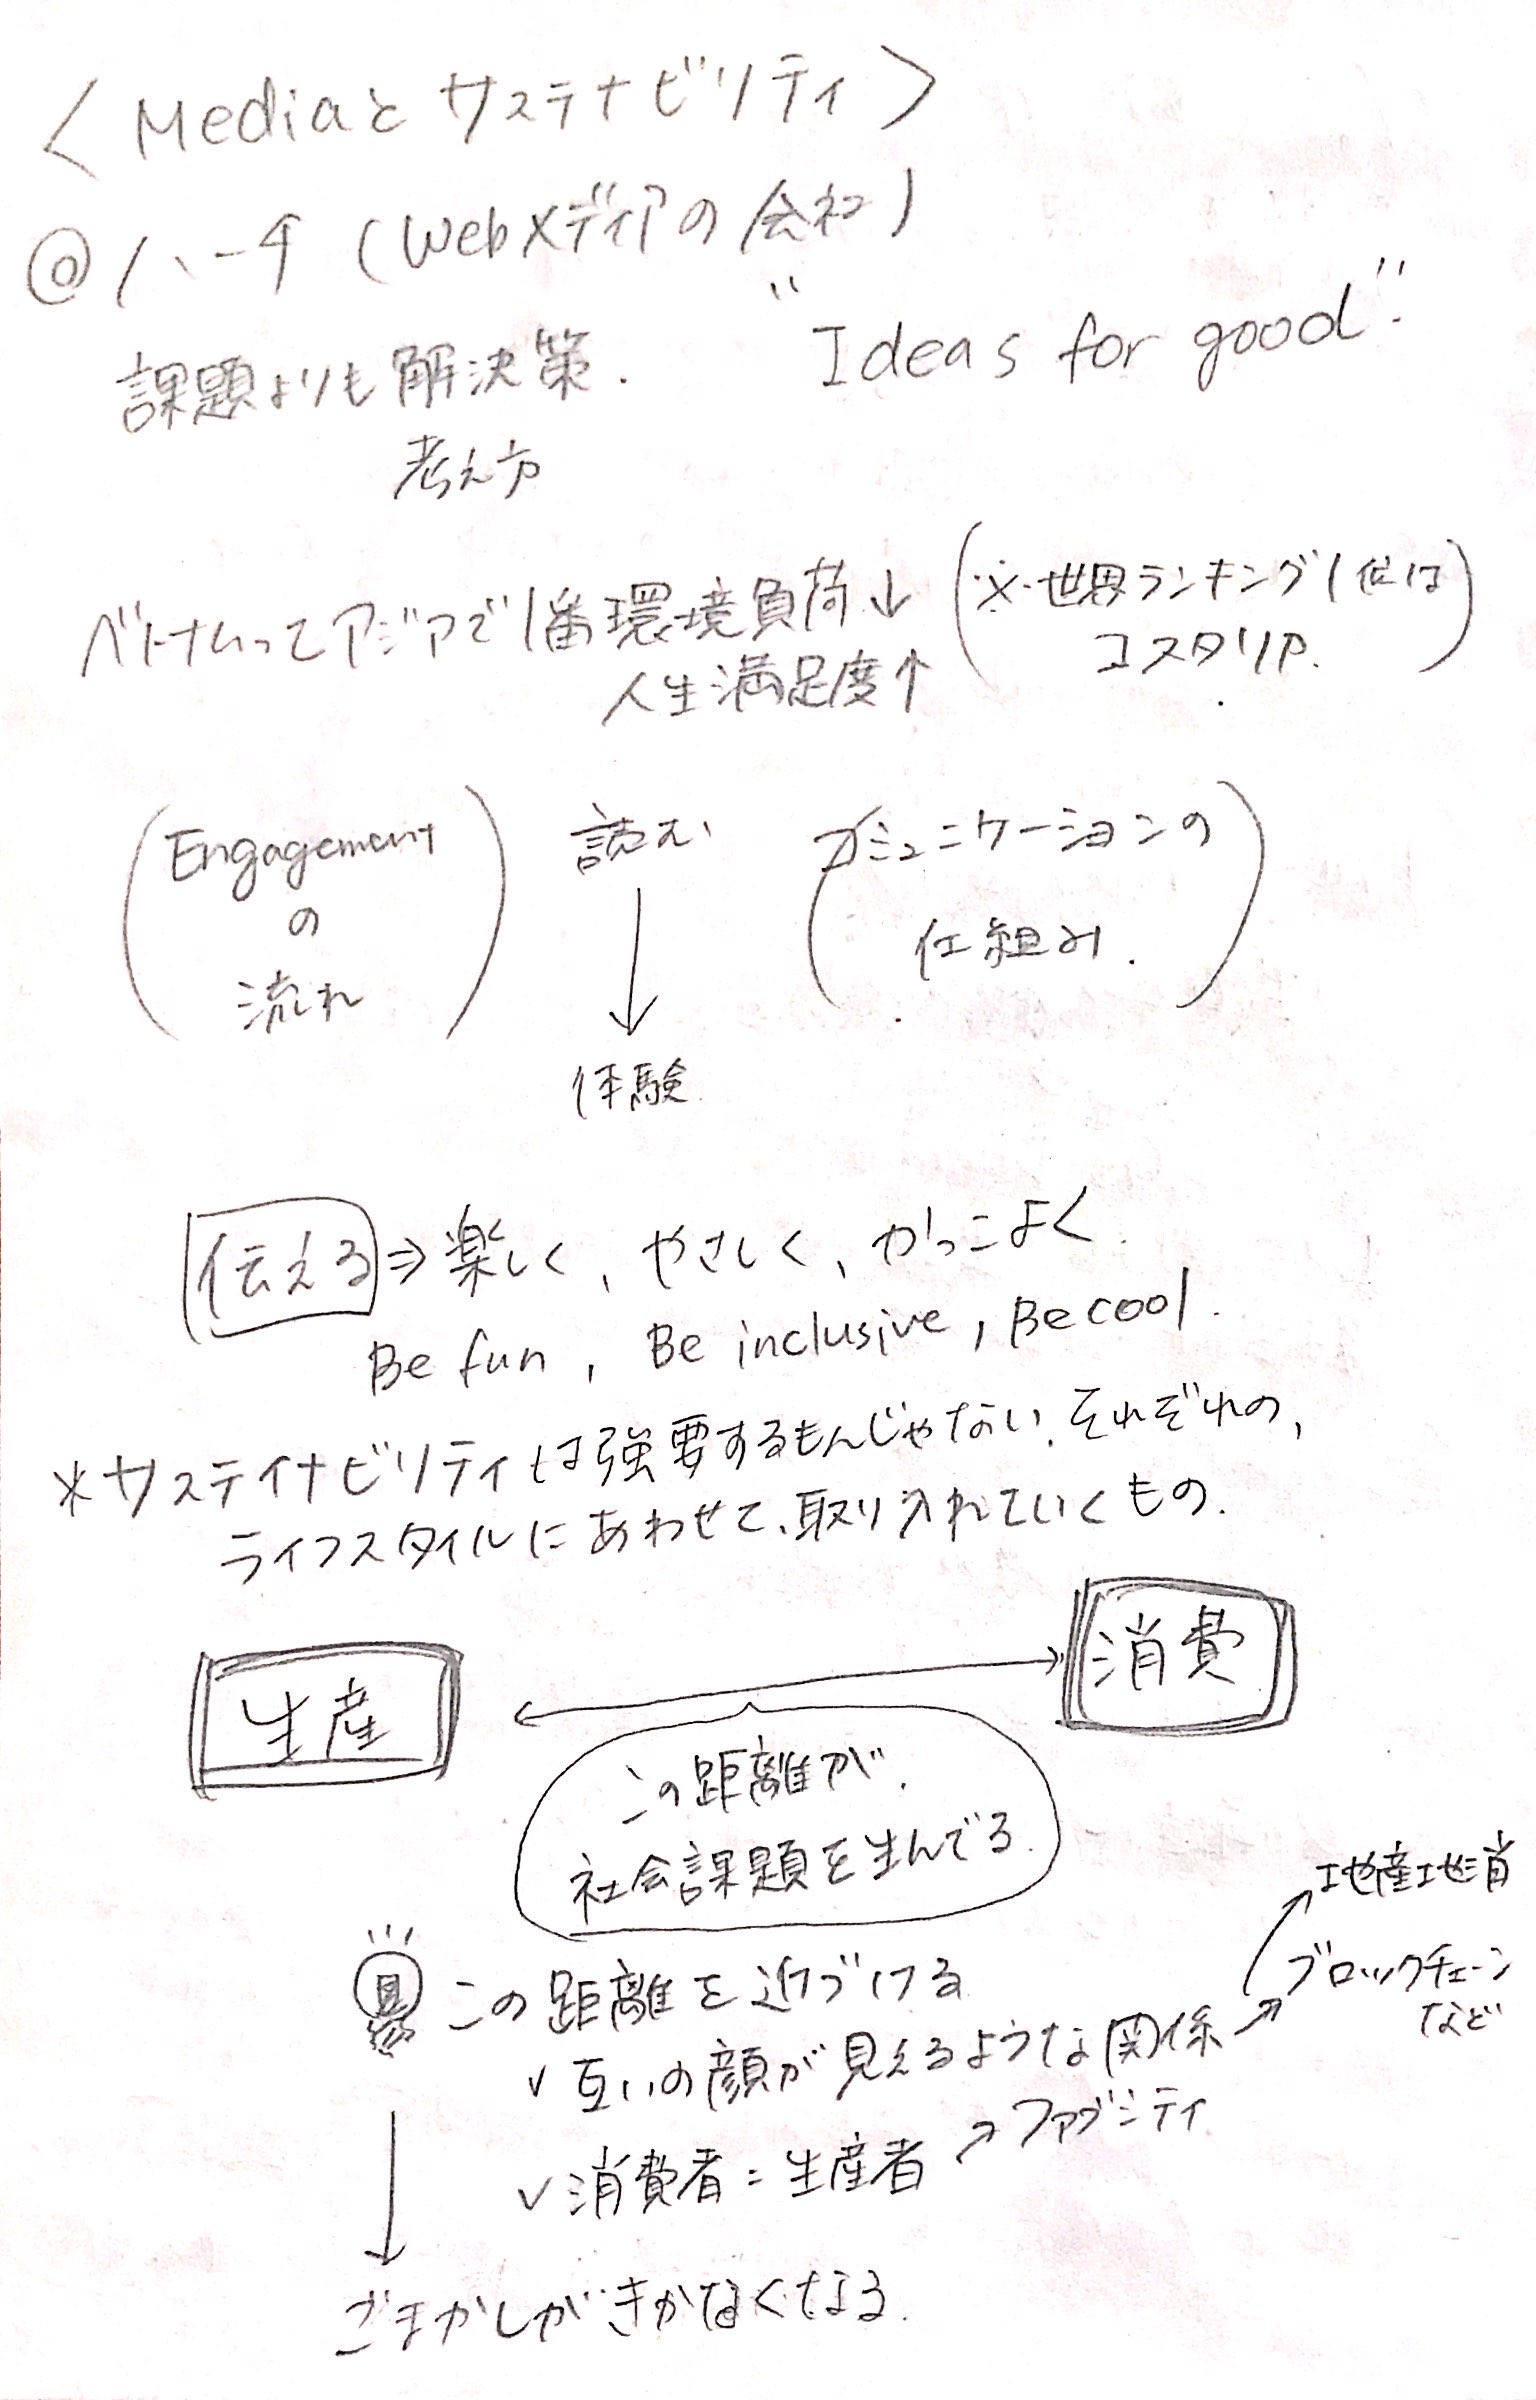 〈Mediaとサステナビリティ〉
@ハーチ(Webメディアの会社)
"Ideas for good".
課題よりも解決策.
考え方
ベトナムってアジアで1番環境負荷↓
人生満足度↑
(※世界ランキング1位は
コスタリカ.)
(Engagement
の
流れ)
読む
↓
体験
(コミュニケーションの
仕組み.)
伝える⇒楽しく、やさしく、かっこよく.
Be fun, Be inclusive, Be cool.
*サステイナビリティは強要するもんじゃない.それぞれの、
ライフスタイルにあわせて、取り入れていくもの.
生産 ↔ 消費
この距離が、
社会課題を生んでる.
この距離を近づける
✓互いの顔が見えるような関係
↗地産地消
↗ブロックチェーン
など
✓消費者=生産者 ↗ファブシティ
↓
ごまかしがきかなくなる.